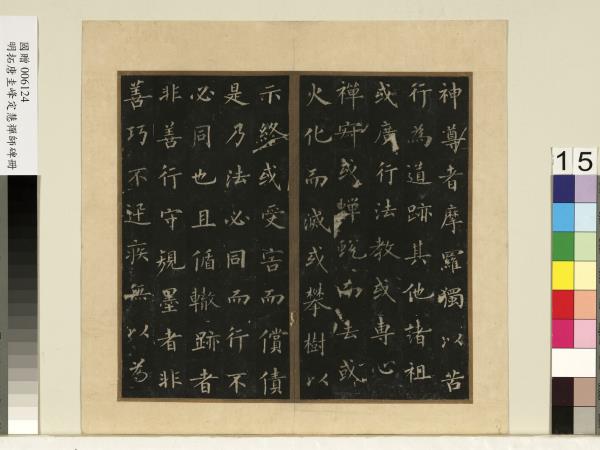 神尊者摩羅獨以苦
行為道跡其他諸祖
或廣行法教或專心
禪寂或蟬蛻而去或
火化而滅或攀樹以
示終或受害而償債
是乃法必同而行不
必同也且循轍跡者
非善行守規墨者非
善巧不迅疾無以為
國贈 006124
明拓唐圭峰定慧禪師碑冊
15